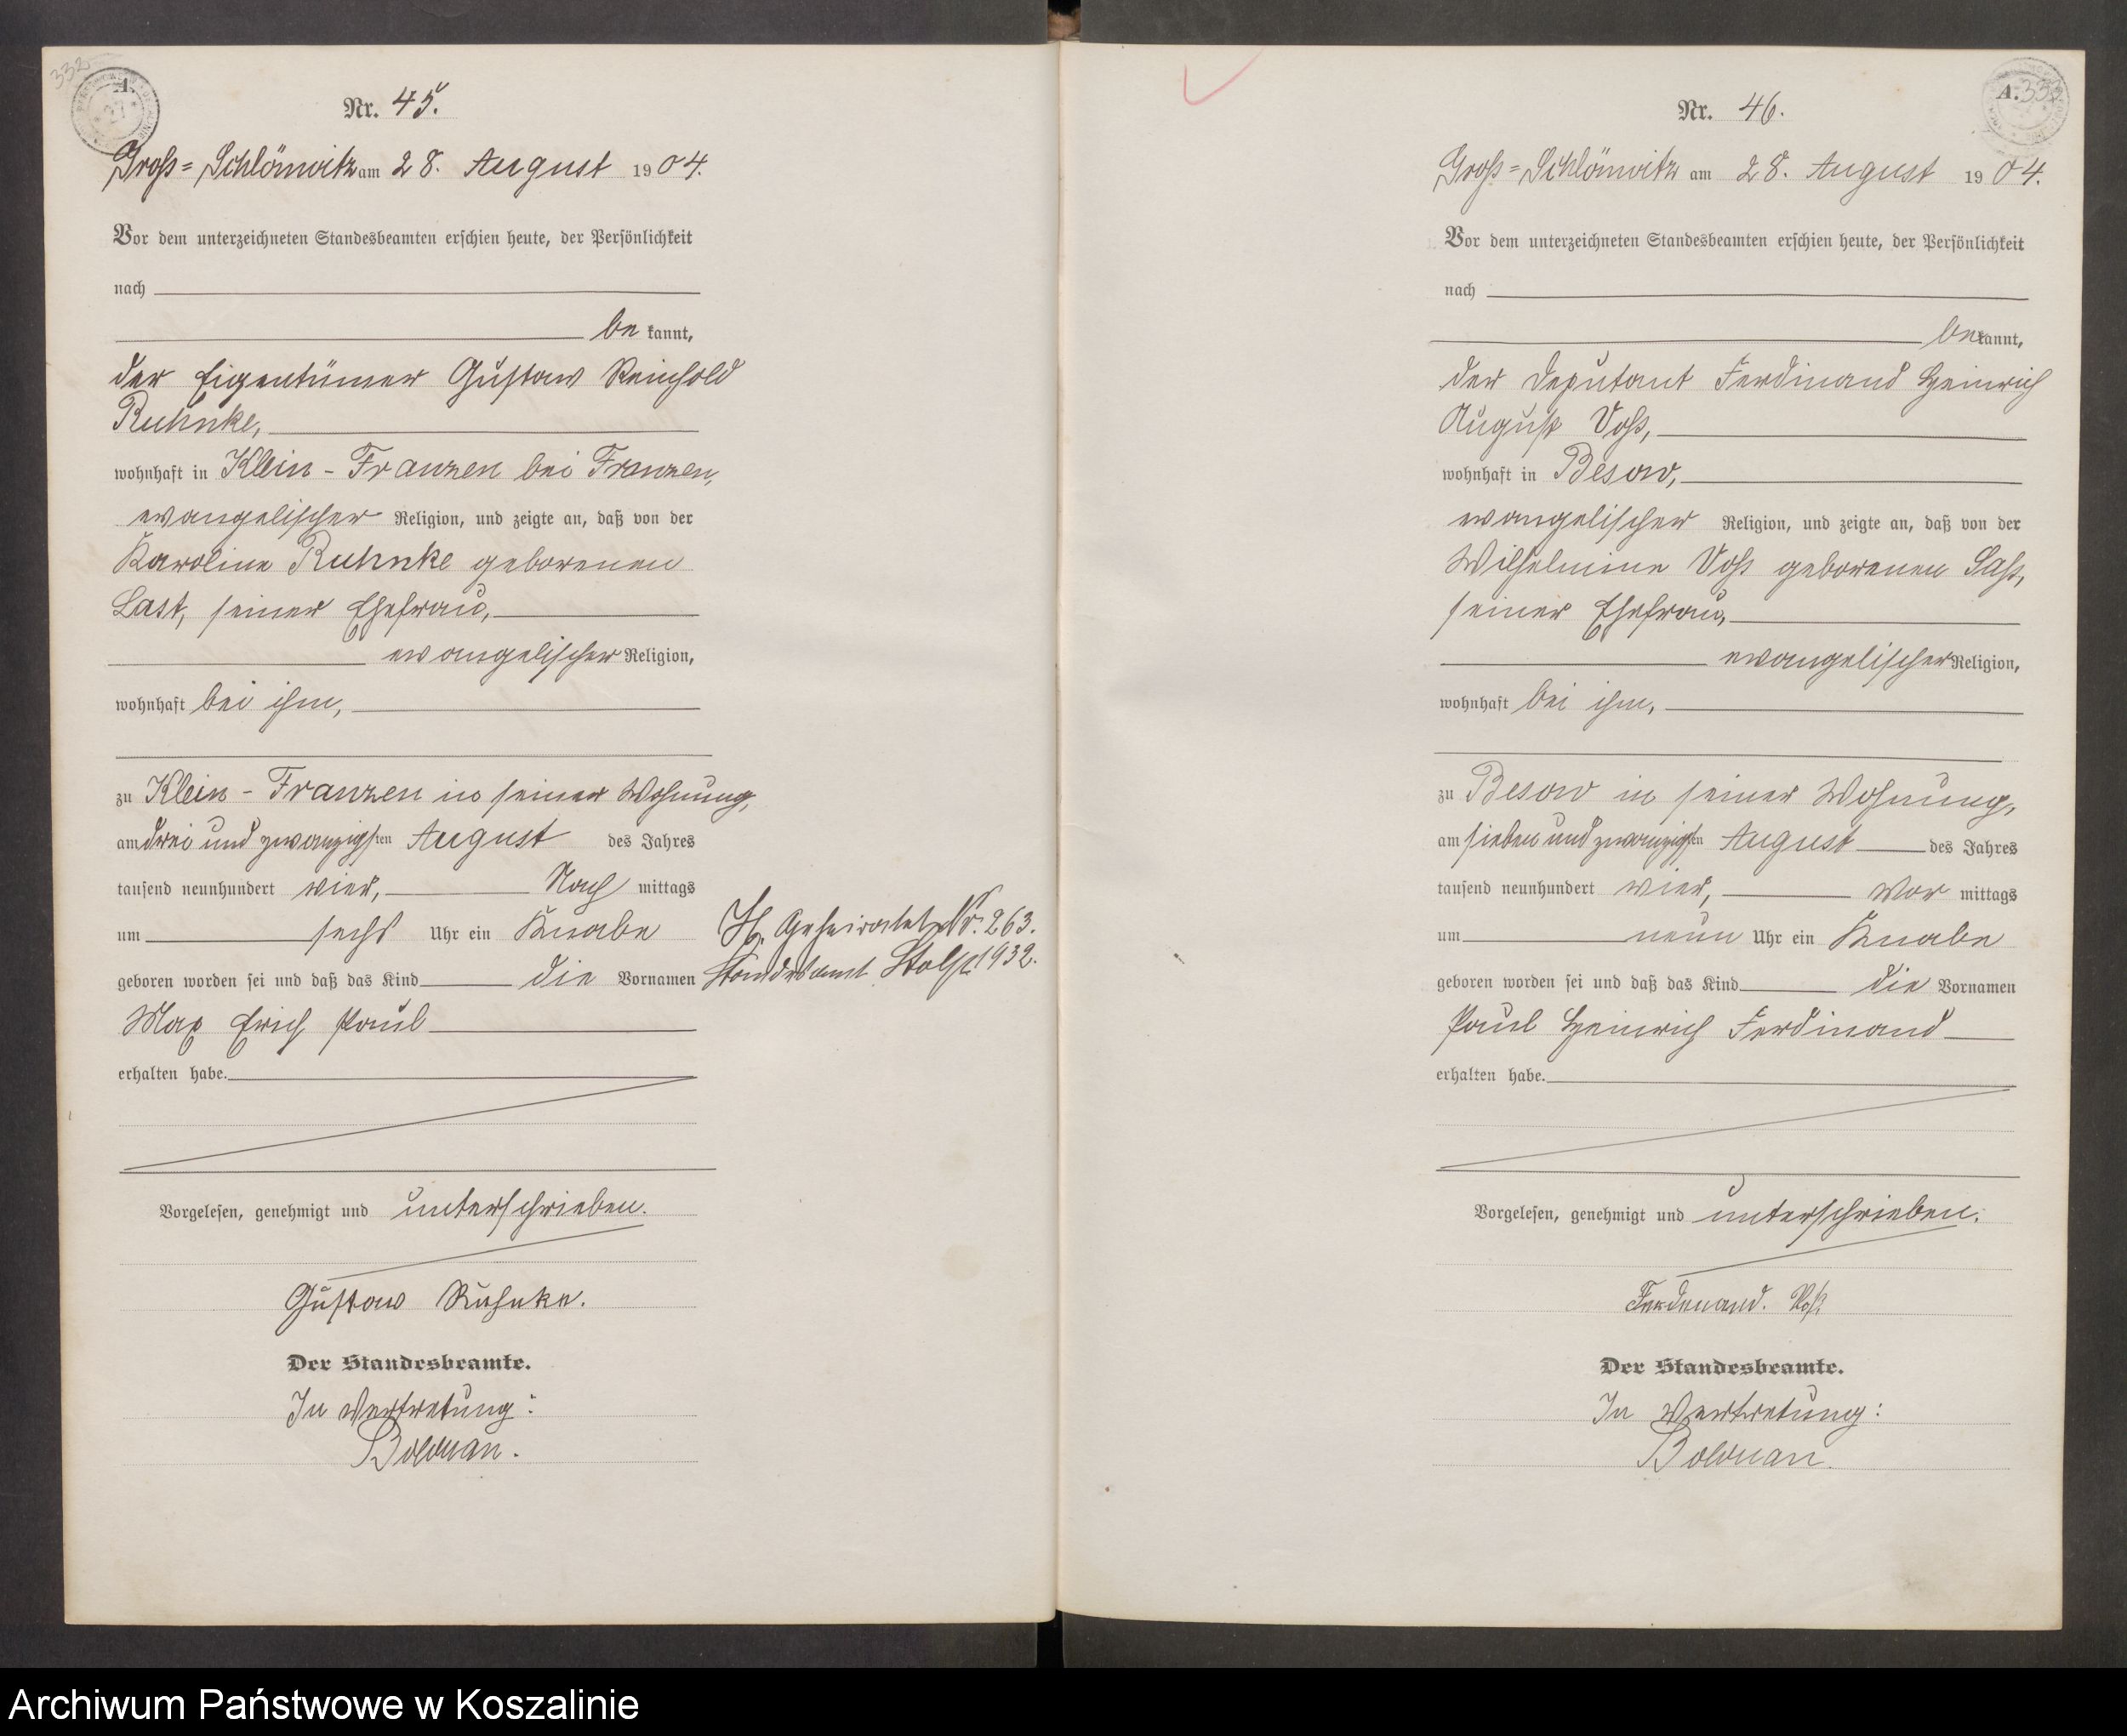 332
A.
27
Nr. 45.
Groß=Schlönwitz am 28. August 1904.
Vor dem unterzeichneten Standesbeamten erschien heute, der Persönlichkeit
nach
be kannt,
der Eigentümer Gustav Reinhold
Ruhnke,
wohnhaft in Klein-Franzen bei Franzen,
evangelischer Religion, und zeigte an, daß von der
Karoline Ruhnke geborenen
Last, seiner Ehefrau,
evangelischer Religion,
wohnhaft bei ihm,
zu Klein-Franzen in seiner Wohnung,
am drei und zwanzigsten August des Jahres
tausend neunhundert vier, Nach mittags
um sechs Uhr ein Knabe
geboren worden sei und daß das Kind die Vornamen
Max Erich Paul
erhalten habe.
Vorgelesen, genehmigt und unterschrieben.
Gustav Ruhnke.
Der Standesbeamte.
In Vertretung:
Bolduan.
H. Geheiratet Nr. 263.
Standesamt Stolp 1932.
A.
Nr. 46.
Groß=Schlönwitz am 28. August 1904.
Vor dem unterzeichneten Standesbeamten erschien heute, der Persönlichkeit
nach
bekannt,
der Deputant Ferdinand Heinrich
August Voß,
wohnhaft in Besow,
evangelischer Religion, und zeigte an, daß von der
Wilhelmine Voß geborenen Saß,
seiner Ehefrau,
evangelischer Religion,
wohnhaft bei ihm,
zu Besow in seiner Wohnung,
am sieben und zwanzigsten August des Jahres
tausend neunhundert vier, Vor mittags
um neun Uhr ein Knabe
geboren worden sei und daß das Kind die Vornamen
Paul Heinrich Ferdinand
erhalten habe.
Vorgelesen, genehmigt und unterschrieben.
Ferdenand. Voß
Der Standesbeamte.
In Vertretung:
Bolduan.
Archiwum Państwowe w Koszalinie